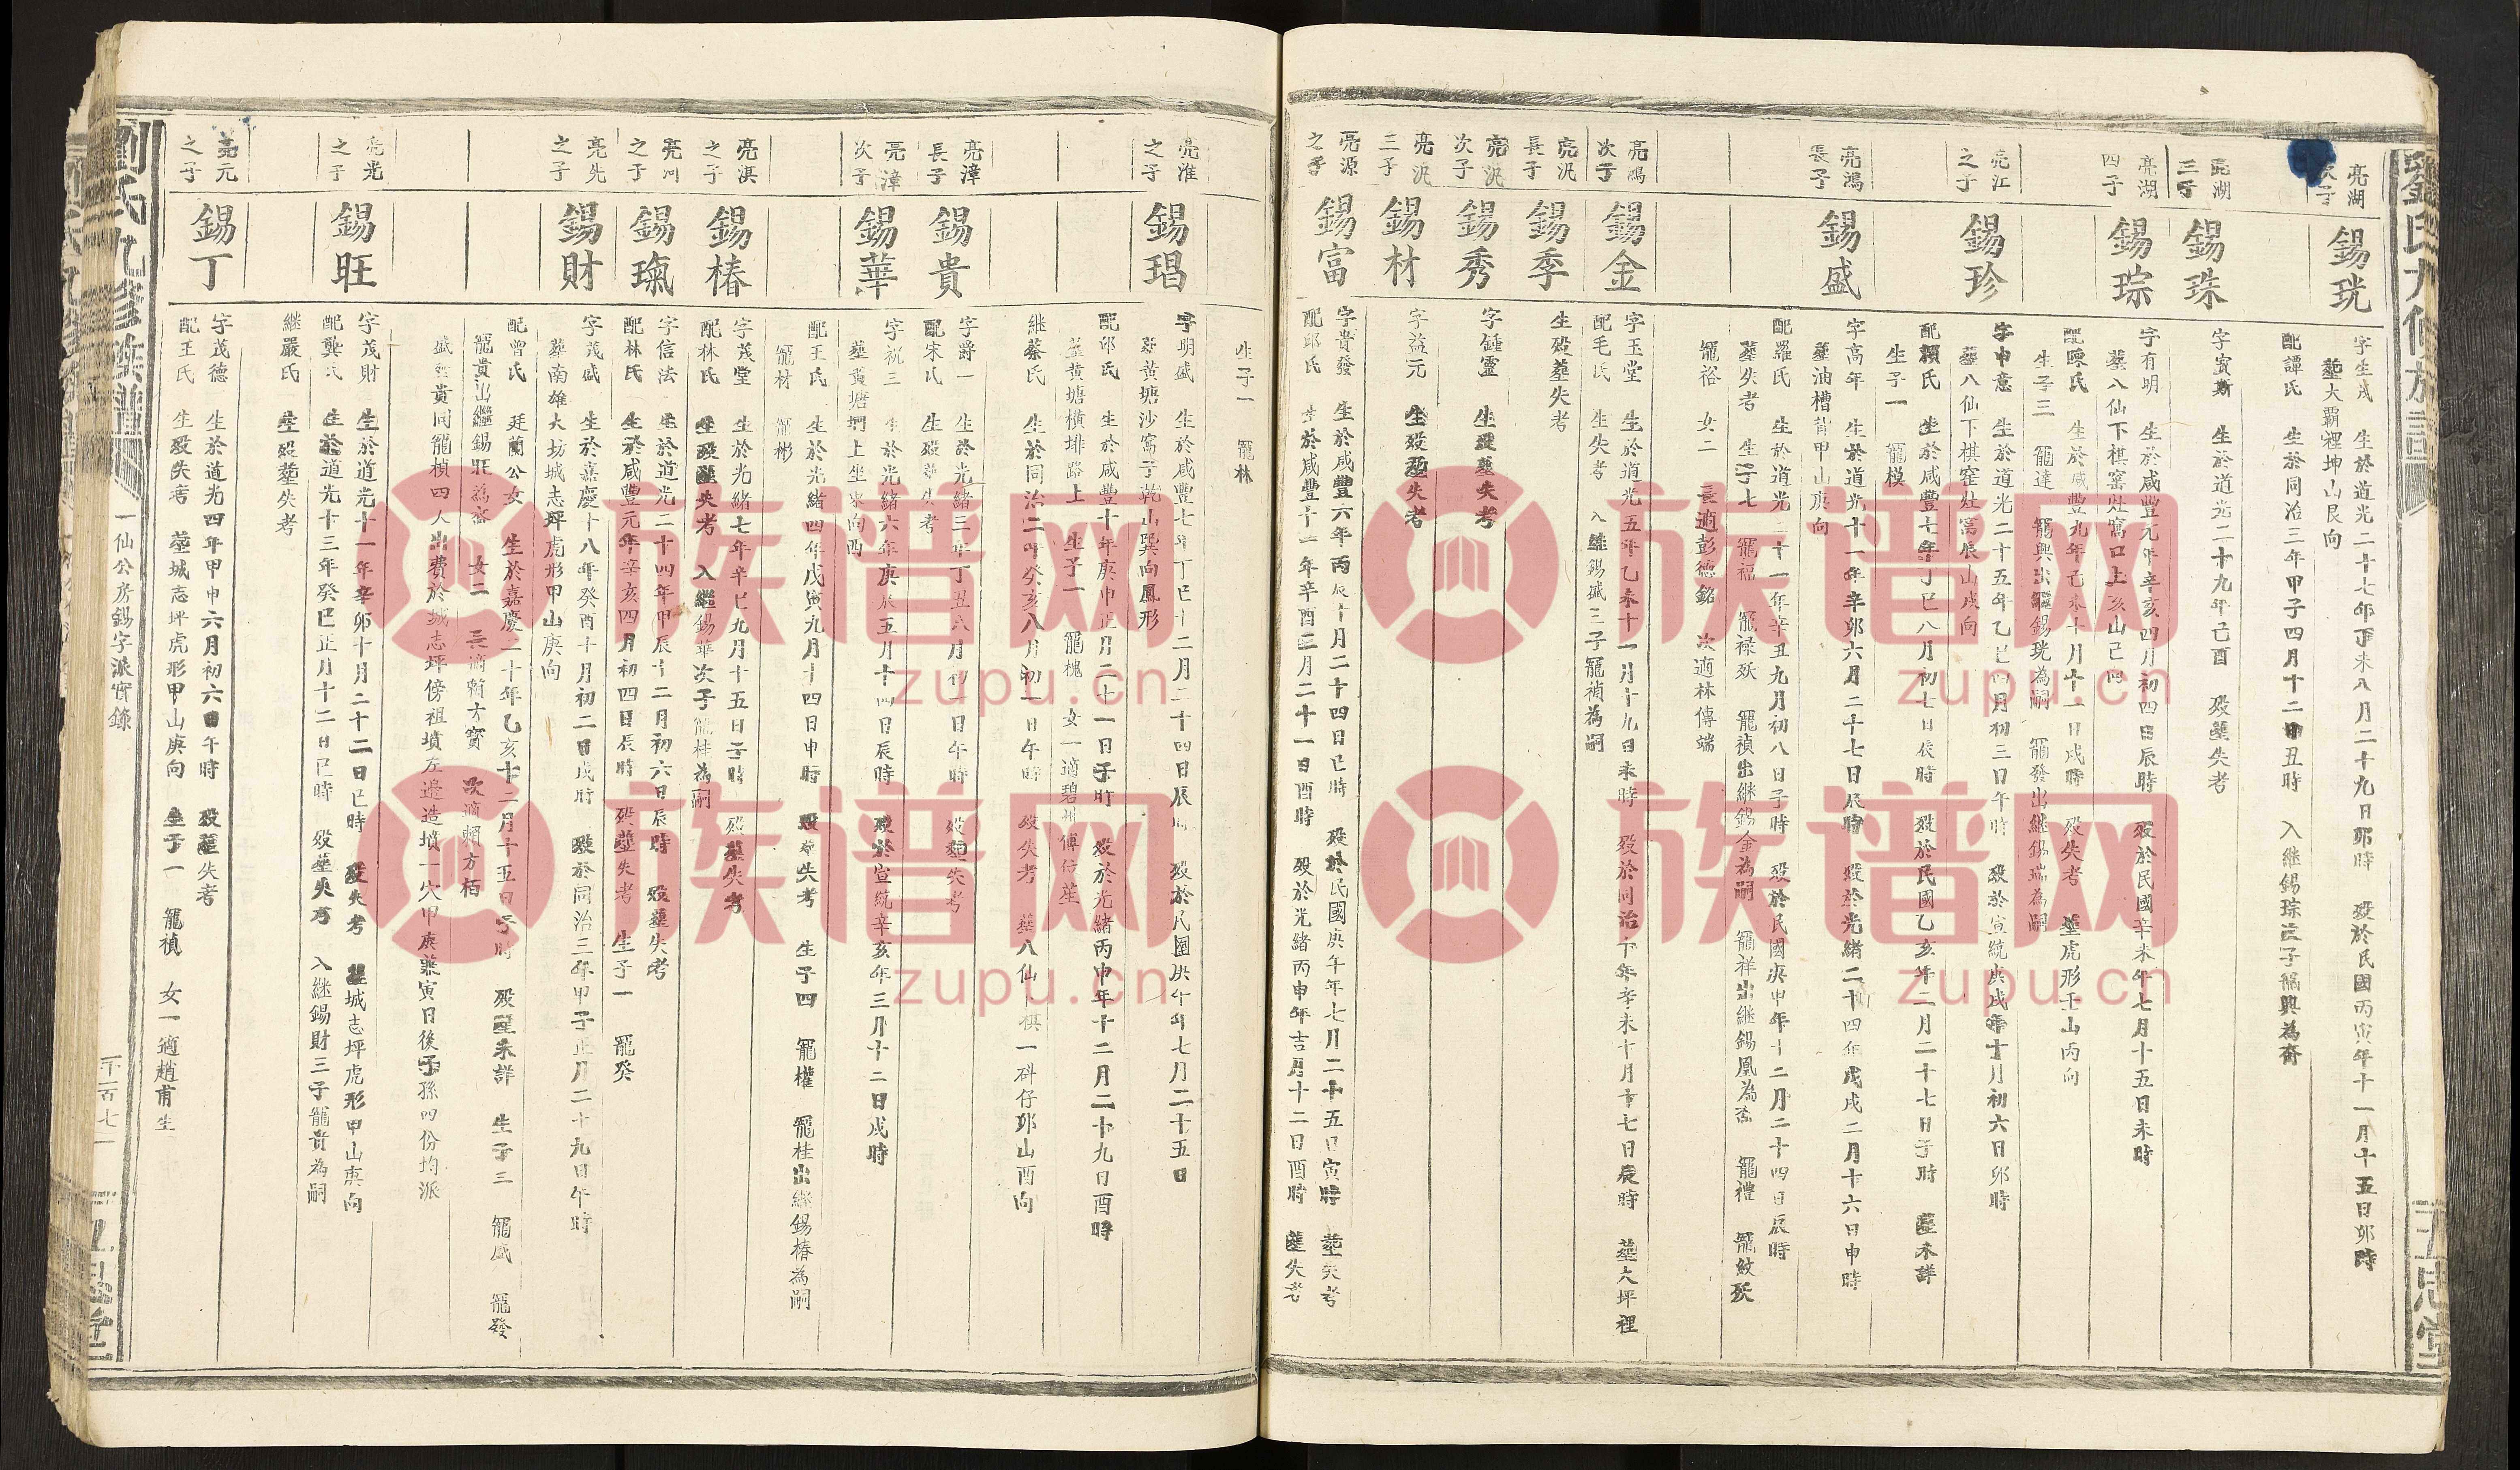 劉氏九修族譜
五忠堂
亮湖次子
錫珖
字生茂 生於道光二十七年丁未八月二十九日卯時 歿於民國丙寅年十一月十五日卯時
塟大霸裡坤山艮向
配譚氏 生於同治三年甲子四月十二日丑時 入继錫琮 子寵興為嗣
亮湖三子
錫珠
字賓斯 生於道光二十九年己酉 歿塟失考
亮湖四子
錫琮
字有明 生於咸豐元年辛亥四月初四日辰時 歿於民國辛未年七月十五日未時
塟八仙下棋窰灶窩口上亥山巳向
配陳氏 生於咸豐九年己未十月十一日戌時 歿失考 塟虎形壬山丙向
生子三 寵達 寵興出繼錫珖為嗣 寵發出继錫瑞為嗣
亮江之子
錫珍
字申意 生於道光二十五年乙巳四月初三日午時 歿於宣統庚戌年十月初六日卯時
塟八仙下棋窰灶窩辰山戌向
配賴氏 生於咸豐七年丁巳八月初七日辰時 歿於民國乙亥年二月二十七日子時 塟未詳
生子一 寵模
亮鴻長子
錫盛
字高年 生於道光十一年辛卯六月二十七日辰時 歿於光緒二十四年戊戌二月十六日申時
塟油槽背甲山庚向
配羅氏 生於道光二十一年辛丑九月初八日子時 歿於民國庚申年十二月二十四日辰時
塟失考 生子七 寵福 寵禄殀 寵禎出继錫金為嗣 寵祥出继錫凰為嗣 寵禮 寵紋殀
寵裕 女二 長適彭德銘 次適林傳端
亮鴻次子
錫金
字玉堂 生於道光五年乙未十一月十九日未時 歿於同治十年辛未十月十七日辰時 塟大坪裡
配毛氏 生失考 入继錫盛三子寵禎為嗣
亮汎長子
錫季
生歿塟失考
亮汎次子
錫秀
字鍾靈 生歿塟失考
亮汎三子
錫材
字益元 生歿塟失考
亮源之子
錫富
字貴發 生於咸豐六年丙辰十月二十四日巳時 歿於民國庚午年七月二十五日寅時 塟失考
配邱氏 生於咸豐十一年辛酉二月二十一日酉時 歿於光緒丙申年吉月十二日酉時 塟失考
生子一 寵林
亮淮之子
錫琩
字明盛 生於咸豐七年丁巳十二月二十四日辰時 歿於民國庚午年七月二十五日
塟黃塘沙窩子乾山巽向鳳形
配邱氏 生於咸豐十年庚申正月二十一日子時 歿於光緒丙申年十二月二十九日酉時
塟黄塘橫排路上 生子一 寵槐 女一適碧州傅信笙
继蔡氏 生於同治二年癸亥八月初一日午時 歿失考 塟八仙 棋一科仔卯山酉向
亮漳長子
錫貴
字爵一 生於光緒三年丁丑八月初一日午時 歿塟失考
配宋氏 生歿塟失考
亮漳次子
錫華
字祝三 生於光緒六年庚辰五月十四日辰時 歿於宣統辛亥年三月十二日戌時
塟黃塘墈上坐東向西
配王氏 生於光緒四年戊寅九月十四日申時 歿塟失考 生子四 寵權 寵桂出繼錫椿為嗣
寵材 寵彬
亮淇之子
錫椿
字茂堂 生於光緒七年辛巳九月十五日子時 歿塟失考
配林氏 生歿塟失考 入繼錫華次子寵桂為嗣
亮河之子
錫瑸
字信法 生於道光二十四年甲辰十二月初六日辰時 歿塟失考
配林氏 生於咸豐元年辛亥四月初四日辰時 歿塟失考 生子一 寵癸
亮先之子
錫財
字茂盛 生於嘉慶十八年癸酉十月初二日戌時 歿於同治三年甲子正月二十九日午時
塟南雄大坊城志坪虎形甲山庚向
配曾氏 廷蘭公女 生於嘉慶二十年乙亥十二月十五日子時 歿塟未詳 生子三 寵盛 寵發
寵貴出繼錫旺為嗣 女二 長適賴才寶 次適賴方栢
盛 貴同寵楨四人出費於城志坪傍祖墳左邊造墳一穴甲庚兼寅日後子孫四份均派
亮光之子
錫旺
字茂財 生於道光十一年辛卯十月二十二日巳時 歿失考 塟城志坪虎形甲山庚向
配龔氏 生於道光十三年癸巳正月十二日巳時 歿塟失考 入继錫財三子寵貴為嗣
继嚴氏 生歿塟失考
亮元之子
錫丁
字茂德 生於道光四年甲申六月初六日午時 歿塟失考
配王氏 生歿失考 塟城志坪虎形甲山庚向 生子一 寵禎 女一適趙甫生
劉氏九修族譜
一仙公房錫字派實錄
一千一百七一
五忠堂
族谱网
zupu.cn
族谱网
zupu.cn
族谱网
zupu.cn
族谱网
zupu.cn